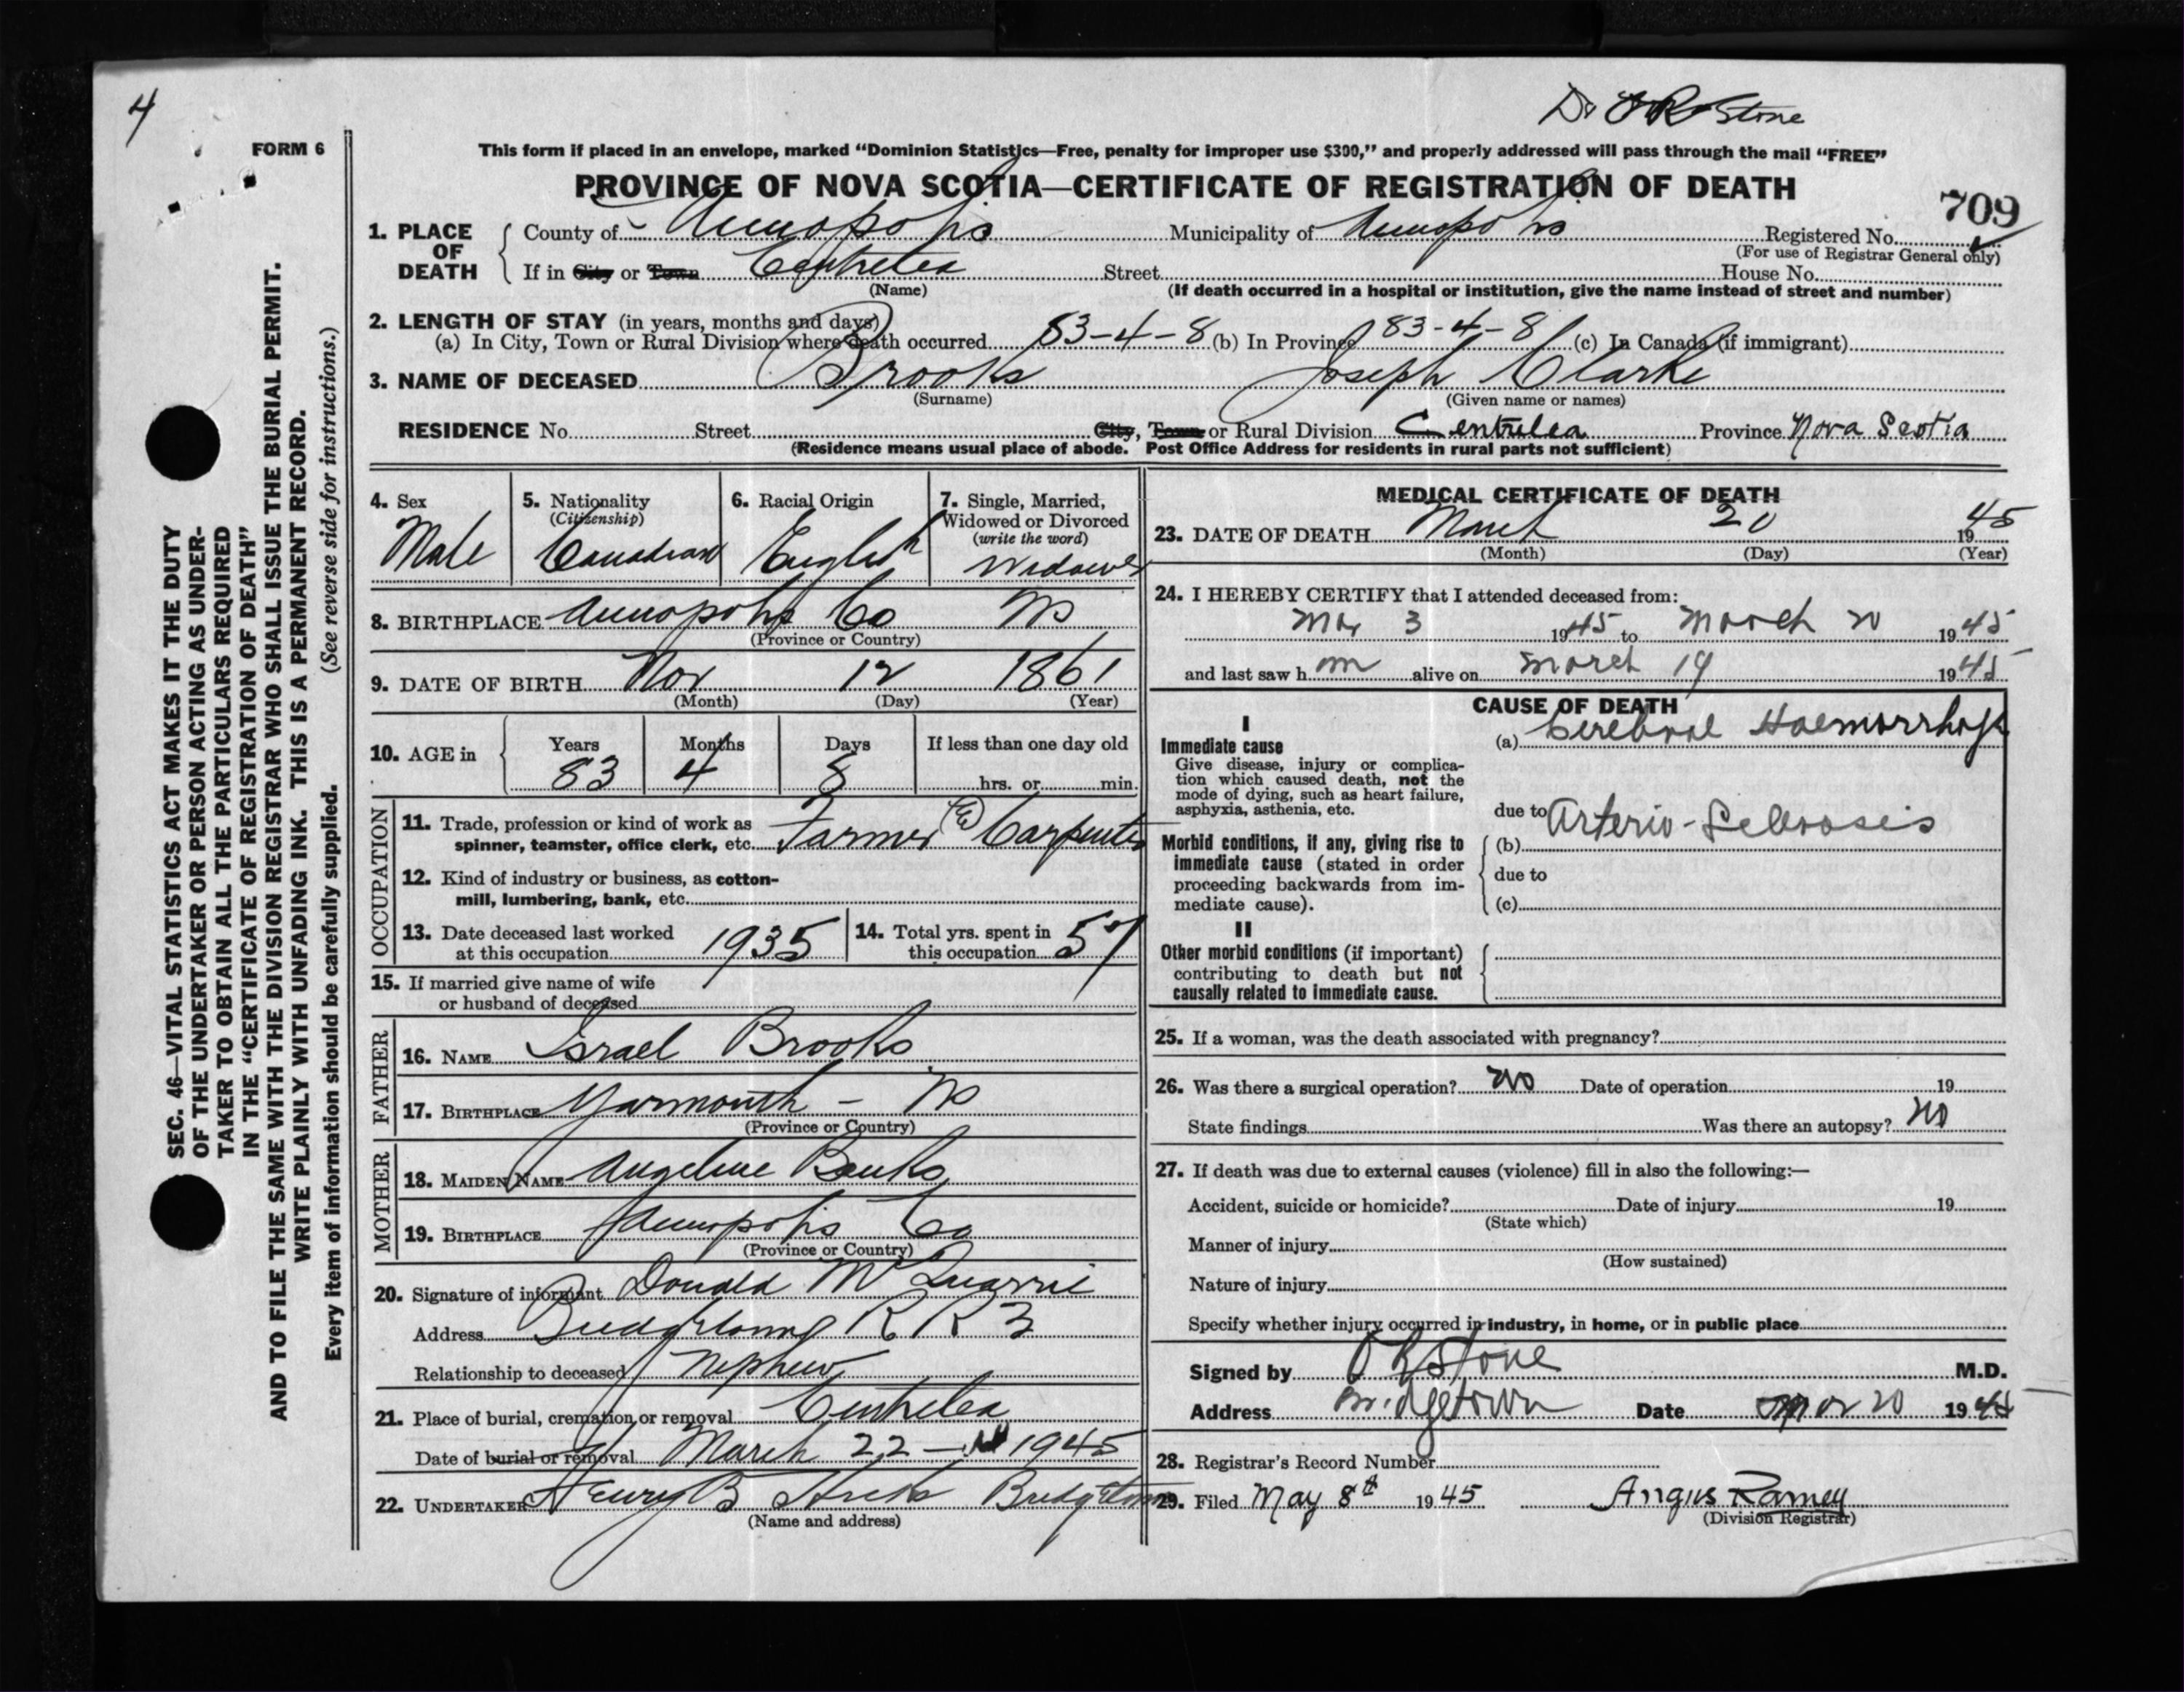 4
Dr O R Stone
FORM 6
This form if placed in an envelope, marked “Dominion Statistics—Free, penalty for improper use $300,” and properly addressed will pass through the mail “FREE”
PROVINCE OF NOVA SCOTIA—CERTIFICATE OF REGISTRATION OF DEATH
709
1. PLACE OF DEATH County of Annapolis Municipality of Annapolis Registered No.
(For use of Registrar General only)
If in City or Town Centrelea Street House No.
(Name) (If death occurred in a hospital or institution, give the name instead of street and number)
2. LENGTH OF STAY (in years, months and days)
(a) In City, Town or Rural Division where death occurred 83-4-8 (b) In Province 83-4-8 (c) In Canada (if immigrant)
3. NAME OF DECEASED Brooks Joseph Clarke
(Surname) (Given name or names)
RESIDENCE No. Street City, Town or Rural Division Centrelea Province Nova Scotia
(Residence means usual place of abode. Post Office Address for residents in rural parts not sufficient)
4. Sex
Male
5. Nationality
(Citizenship)
Canadian
6. Racial Origin
English
7. Single, Married,
Widowed or Divorced
(write the word)
Widower
8. BIRTHPLACE Annapolis Co NS
(Province or Country)
9. DATE OF BIRTH Nov 12 1861
(Month) (Day) (Year)
10. AGE in Years Months Days If less than one day old
83 4 8 hrs. or min.
OCCUPATION
11. Trade, profession or kind of work as
spinner, teamster, office clerk, etc. Farmer & Carpenter
12. Kind of industry or business, as cotton-
mill, lumbering, bank, etc.
13. Date deceased last worked
at this occupation 1935
14. Total yrs. spent in
this occupation 57
15. If married give name of wife
or husband of deceased
FATHER
16. NAME Israel Brooks
17. BIRTHPLACE Yarmouth - NS
(Province or Country)
MOTHER
18. MAIDEN NAME Angeline Banks
19. BIRTHPLACE Annapolis Co
(Province or Country)
20. Signature of informant Donald McQuarrie
Address Bridgetown R R 3
Relationship to deceased Nephew
21. Place of burial, cremation or removal Centrelea
Date of burial or removal March 22 - 1945
22. UNDERTAKER Henry B Hicks Bridgetown
(Name and address)
MEDICAL CERTIFICATE OF DEATH
23. DATE OF DEATH March 20 1945
(Month) (Day) (Year)
24. I HEREBY CERTIFY that I attended deceased from:
Mar 3 1945 to March 20 1945
and last saw h im alive on March 19 1945
CAUSE OF DEATH
I
Immediate cause
Give disease, injury or complica-
tion which caused death, not the
mode of dying, such as heart failure,
asphyxia, asthenia, etc.
(a) Cerebral Haemorrhage
due to Arterio-Sclerosis
Morbid conditions, if any, giving rise to
immediate cause (stated in order
proceeding backwards from im-
mediate cause).
(b)
due to
(c)
II
Other morbid conditions (if important)
contributing to death but not
causally related to immediate cause.
25. If a woman, was the death associated with pregnancy?
26. Was there a surgical operation? No Date of operation 19
State findings Was there an autopsy? No
27. If death was due to external causes (violence) fill in also the following:—
Accident, suicide or homicide? Date of injury 19
(State which)
Manner of injury
(How sustained)
Nature of injury
Specify whether injury occurred in industry, in home, or in public place
Signed by O R Stone M.D.
Address Bridgetown Date Mar 20 1945
28. Registrar's Record Number
29. Filed May 8th 1945 Angus Ramey
(Division Registrar)
SEC. 46—VITAL STATISTICS ACT MAKES IT THE DUTY
OF THE UNDERTAKER OR PERSON ACTING AS UNDER-
TAKER TO OBTAIN ALL THE PARTICULARS REQUIRED
IN THE “CERTIFICATE OF REGISTRATION OF DEATH”
AND TO FILE THE SAME WITH THE DIVISION REGISTRAR WHO SHALL ISSUE THE BURIAL PERMIT.
WRITE PLAINLY WITH UNFADING INK. THIS IS A PERMANENT RECORD.
Every item of information should be carefully supplied. (See reverse side for instructions.)